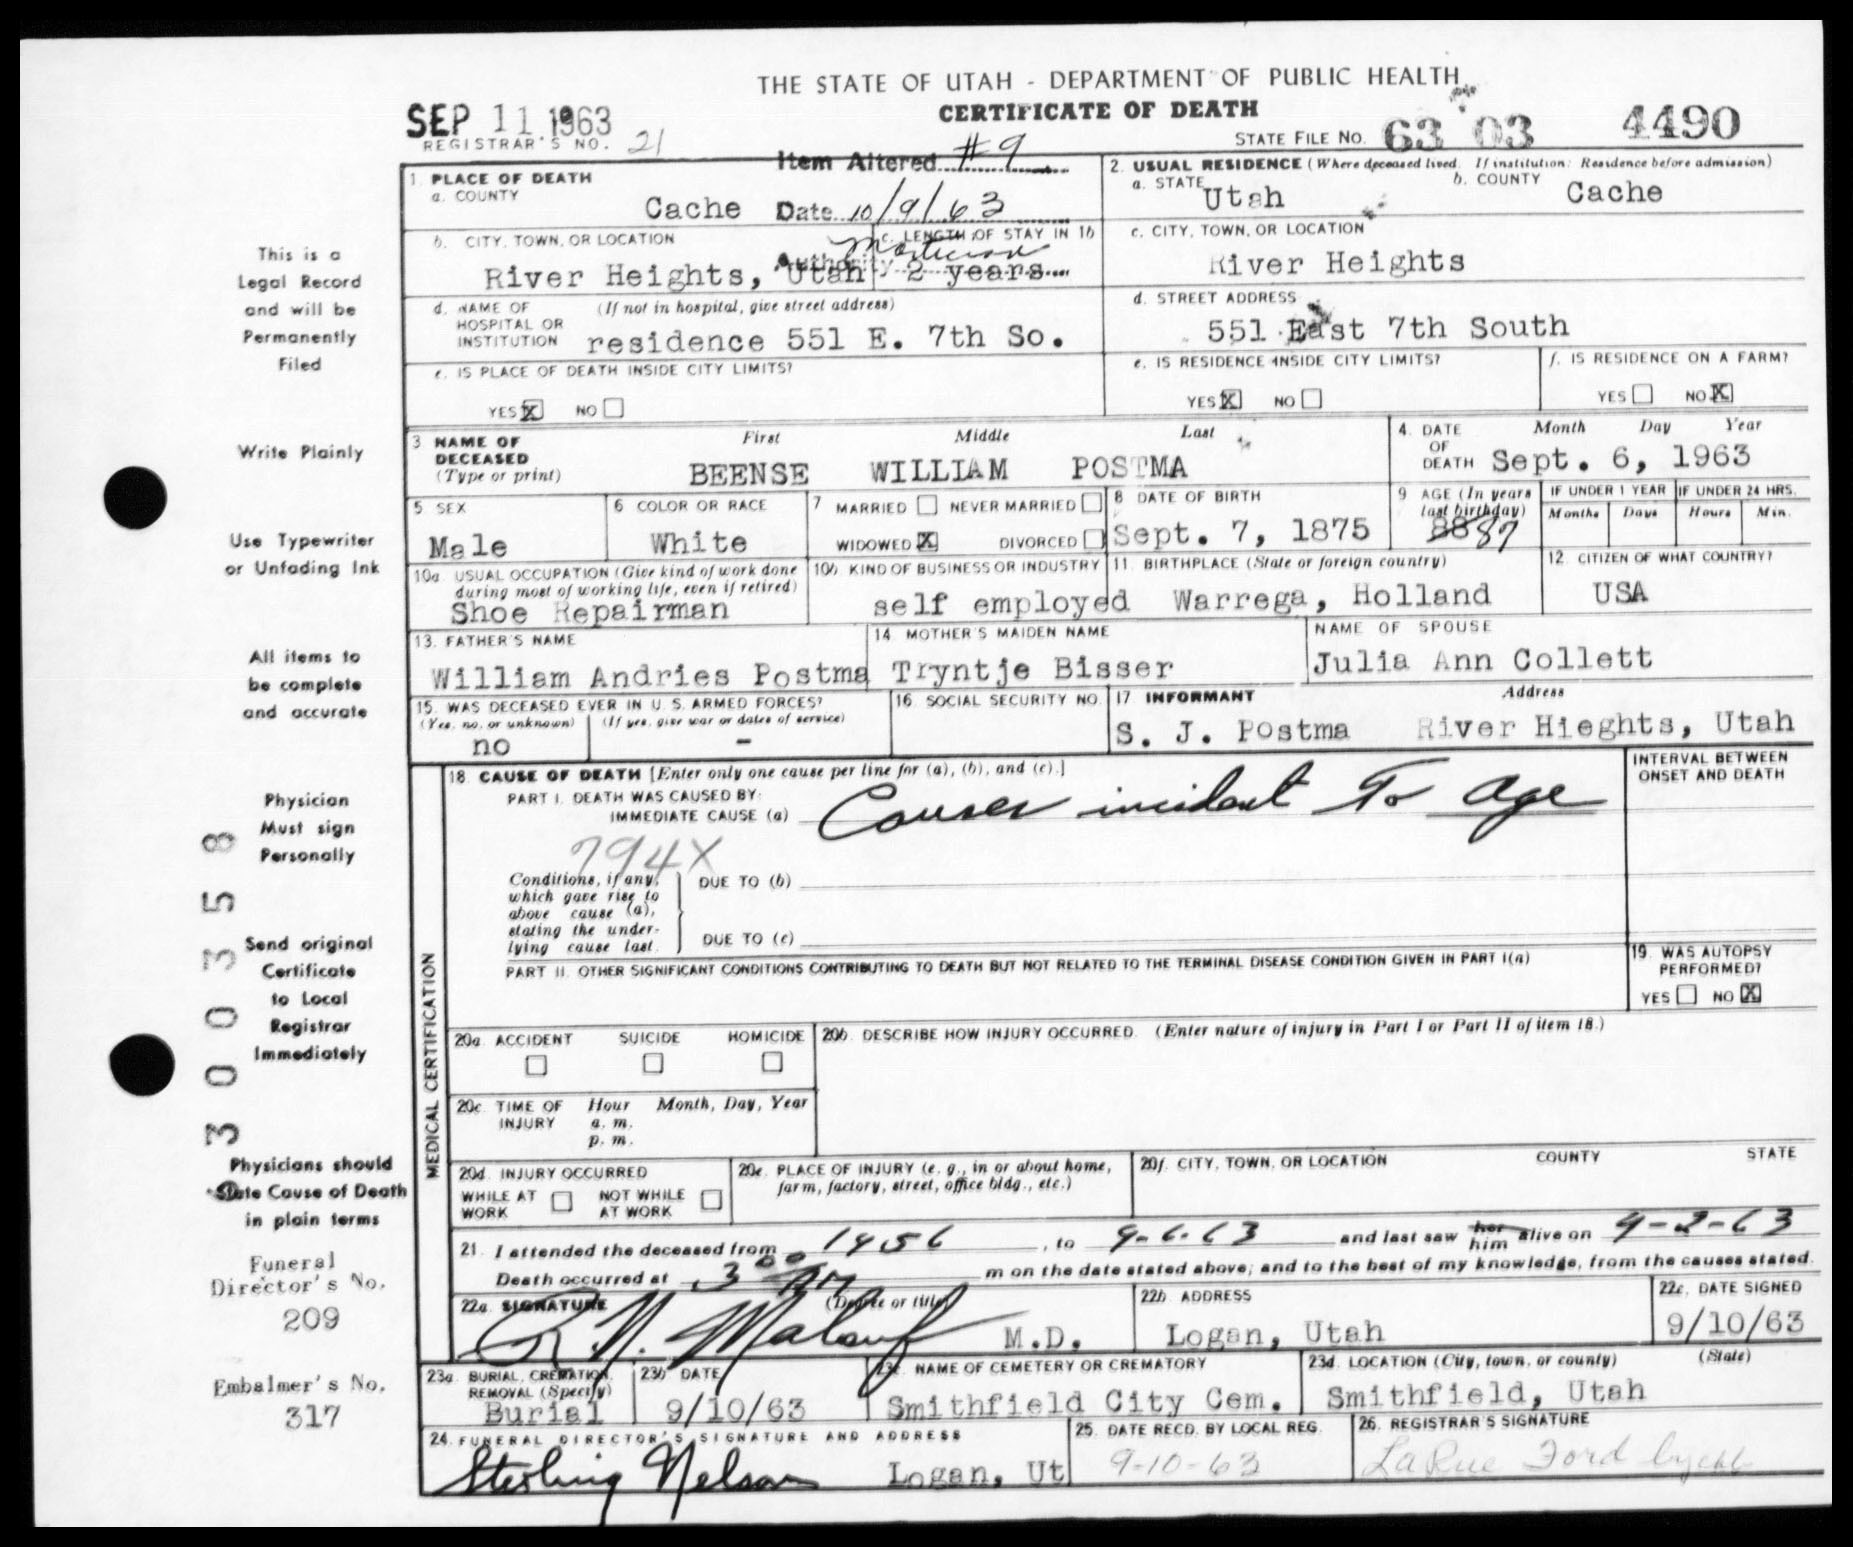 THE STATE OF UTAH - DEPARTMENT OF PUBLIC HEALTH
CERTIFICATE OF DEATH
SEP 11 1963
REGISTRAR'S NO. 21
STATE FILE NO. 63 03 4490
Item Altered #9
Date 10/9/63
Authority Mortician
1. PLACE OF DEATH
a. COUNTY
Cache
b. CITY, TOWN, OR LOCATION
River Heights, Utah
c. LENGTH OF STAY IN 1b
2 years
d. NAME OF HOSPITAL OR INSTITUTION (If not in hospital, give street address)
residence 551 E. 7th So.
e. IS PLACE OF DEATH INSIDE CITY LIMITS?
YES X NO
2. USUAL RESIDENCE (Where deceased lived. If institution: Residence before admission)
a. STATE
Utah
b. COUNTY
Cache
c. CITY, TOWN, OR LOCATION
River Heights
d. STREET ADDRESS
551 East 7th South
e. IS RESIDENCE INSIDE CITY LIMITS?
YES X NO
f. IS RESIDENCE ON A FARM?
YES NO X
3 NAME OF DECEASED (Type or print)
First Middle Last
BEENSE WILLIAM POSTMA
4. DATE OF DEATH
Month Day Year
Sept. 6, 1963
5 SEX
Male
6 COLOR OR RACE
White
7 MARRIED NEVER MARRIED
WIDOWED X DIVORCED
8 DATE OF BIRTH
Sept. 7, 1875
9 AGE (In years last birthday)
88 87
IF UNDER 1 YEAR
Months Days
IF UNDER 24 HRS.
Hours Min.
10a. USUAL OCCUPATION (Give kind of work done during most of working life, even if retired)
Shoe Repairman
10b KIND OF BUSINESS OR INDUSTRY
self employed
11. BIRTHPLACE (State or foreign country)
Warrega, Holland
12 CITIZEN OF WHAT COUNTRY?
USA
13. FATHER'S NAME
William Andries Postma
14 MOTHER'S MAIDEN NAME
Tryntje Bisser
NAME OF SPOUSE
Julia Ann Collett
15. WAS DECEASED EVER IN U. S. ARMED FORCES?
(Yes, no, or unknown) (If yes, give war or dates of service)
no -
16 SOCIAL SECURITY NO.
17 INFORMANT Address
S. J. Postma River Hieghts, Utah
MEDICAL CERTIFICATION
18. CAUSE OF DEATH [Enter only one cause per line for (a), (b), and (c).]
INTERVAL BETWEEN ONSET AND DEATH
PART I. DEATH WAS CAUSED BY:
IMMEDIATE CAUSE (a) Causes incident To age
794X
Conditions, if any, which gave rise to above cause (a), stating the underlying cause last.
DUE TO (b)
DUE TO (c)
PART II. OTHER SIGNIFICANT CONDITIONS CONTRIBUTING TO DEATH BUT NOT RELATED TO THE TERMINAL DISEASE CONDITION GIVEN IN PART I(a)
19. WAS AUTOPSY PERFORMED?
YES NO X
20a. ACCIDENT SUICIDE HOMICIDE
20b. DESCRIBE HOW INJURY OCCURRED. (Enter nature of injury in Part I or Part II of item 18.)
20c. TIME OF INJURY Hour Month, Day, Year
a. m.
p. m.
20d. INJURY OCCURRED
WHILE AT WORK NOT WHILE AT WORK
20e. PLACE OF INJURY (e. g., in or about home, farm, factory, street, office bldg., etc.)
20f. CITY, TOWN, OR LOCATION COUNTY STATE
21. I attended the deceased from 1956, to 9-6-63 and last saw her him alive on 9-2-63
Death occurred at 3 00 AM m on the date stated above; and to the best of my knowledge, from the causes stated.
22a. SIGNATURE (Degree or title)
R. N. Malouf M.D.
22b. ADDRESS
Logan, Utah
22c. DATE SIGNED
9/10/63
23a. BURIAL, CREMATION, REMOVAL (Specify)
Burial
23b DATE
9/10/63
23c NAME OF CEMETERY OR CREMATORY
Smithfield City Cem.
23d. LOCATION (City, town, or county) (State)
Smithfield, Utah
24. FUNERAL DIRECTOR'S SIGNATURE AND ADDRESS
Sterling Nelson Logan, Ut
25. DATE RECD. BY LOCAL REG.
9-10-63
26. REGISTRAR'S SIGNATURE
LaRue Ford
This is a
Legal Record
and will be
Permanently
Filed
Write Plainly
Use Typewriter
or Unfading Ink
All items to
be complete
and accurate
Physician
Must sign
Personally
Send original
Certificate
to Local
Registrar
Immediately
Physicians should
State Cause of Death
in plain terms
Funeral
Director's No.
209
Embalmer's No.
317
3 0 0 3 5 8